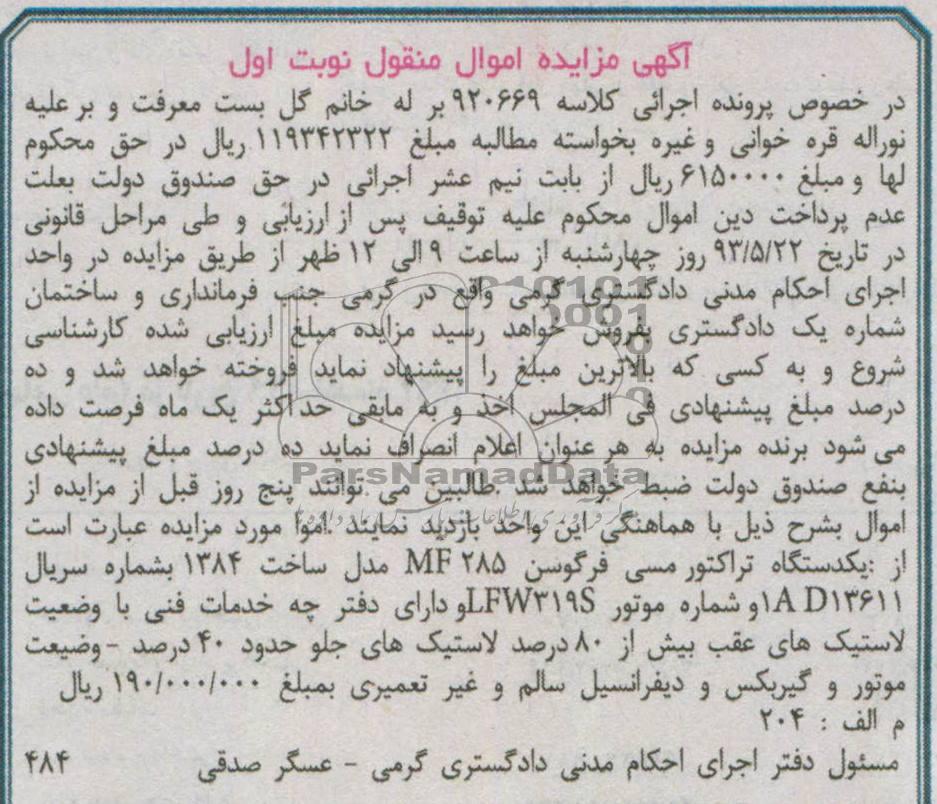 آگهی مزایده اموال منقول نوبت اول
در خصوص پرونده اجرائی کلاسه ۹۲۰۶۶۹ بر له خانم گل بست معرفت و بر علیه
نوراله قره خوانی و غیره بخواسته مطالبه مبلغ ۱۱۹۳۴۲۳۲۲ ریال در حق محکوم
لها و مبلغ ۶۱۵۰۰۰۰ ریال از بابت نیم عشر اجرائی در حق صندوق دولت بعلت
عدم پرداخت دین اموال محکوم علیه توقیف پس از ارزیائی و طی مراحل قانونی
در تاریخ ۹۳/۵/۲۲ روز چهارشنبه از ساعت ۹ الی ۱۲ ظهر از طریق مزایده در واحد
اجرای احکام مدنی دادگستری گرمی واقع در گرمی جنب فرمانداری و ساختمان
شماره یک دادگستری بفروش خواهد رسید مزایده مبلغ ارزیابی شده کارشناسی
شروع و به کسی که بالاترین مبلغ را پیشنهاد نماید فروخته خواهد شد و ده
درصد مبلغ پیشنهادی فی المجلس اخذ و به مابقی حداکثر یک ماه فرصت داده
می شود برنده مزایده به هر عنوان اعلام انصراف نماید ده درصد مبلغ پیشنهادی
بنفع صندوق دولت ضبط خواهد شد .طالبین می توانند پنج روز قبل از مزایده از
اموال بشرح ذیل با هماهنگی این واحد بازدید نمایند .اموا مورد مزایده عبارت است
از :یکدستگاه تراکتور مسی فرگوسن MF ۲۸۵ مدل ساخت ۱۳۸۴ بشماره سریال
۱A D۱۳۶۱۱ و شماره موتور LFW۳۱۹S و دارای دفتر چه خدمات فنی با وضعیت
لاستیک های عقب بیش از ۸۰ درصد لاستیک های جلو حدود ۴۰ درصد - وضیعت
موتور و گیربکس و دیفرانسیل سالم و غیر تعمیری بمبلغ ۱۹۰/۰۰۰/۰۰۰ ریال
م الف : ۲۰۴
مسئول دفتر اجرای احکام مدنی دادگستری گرمی - عسگر صدقی ۴۸۴
ParsNamadData